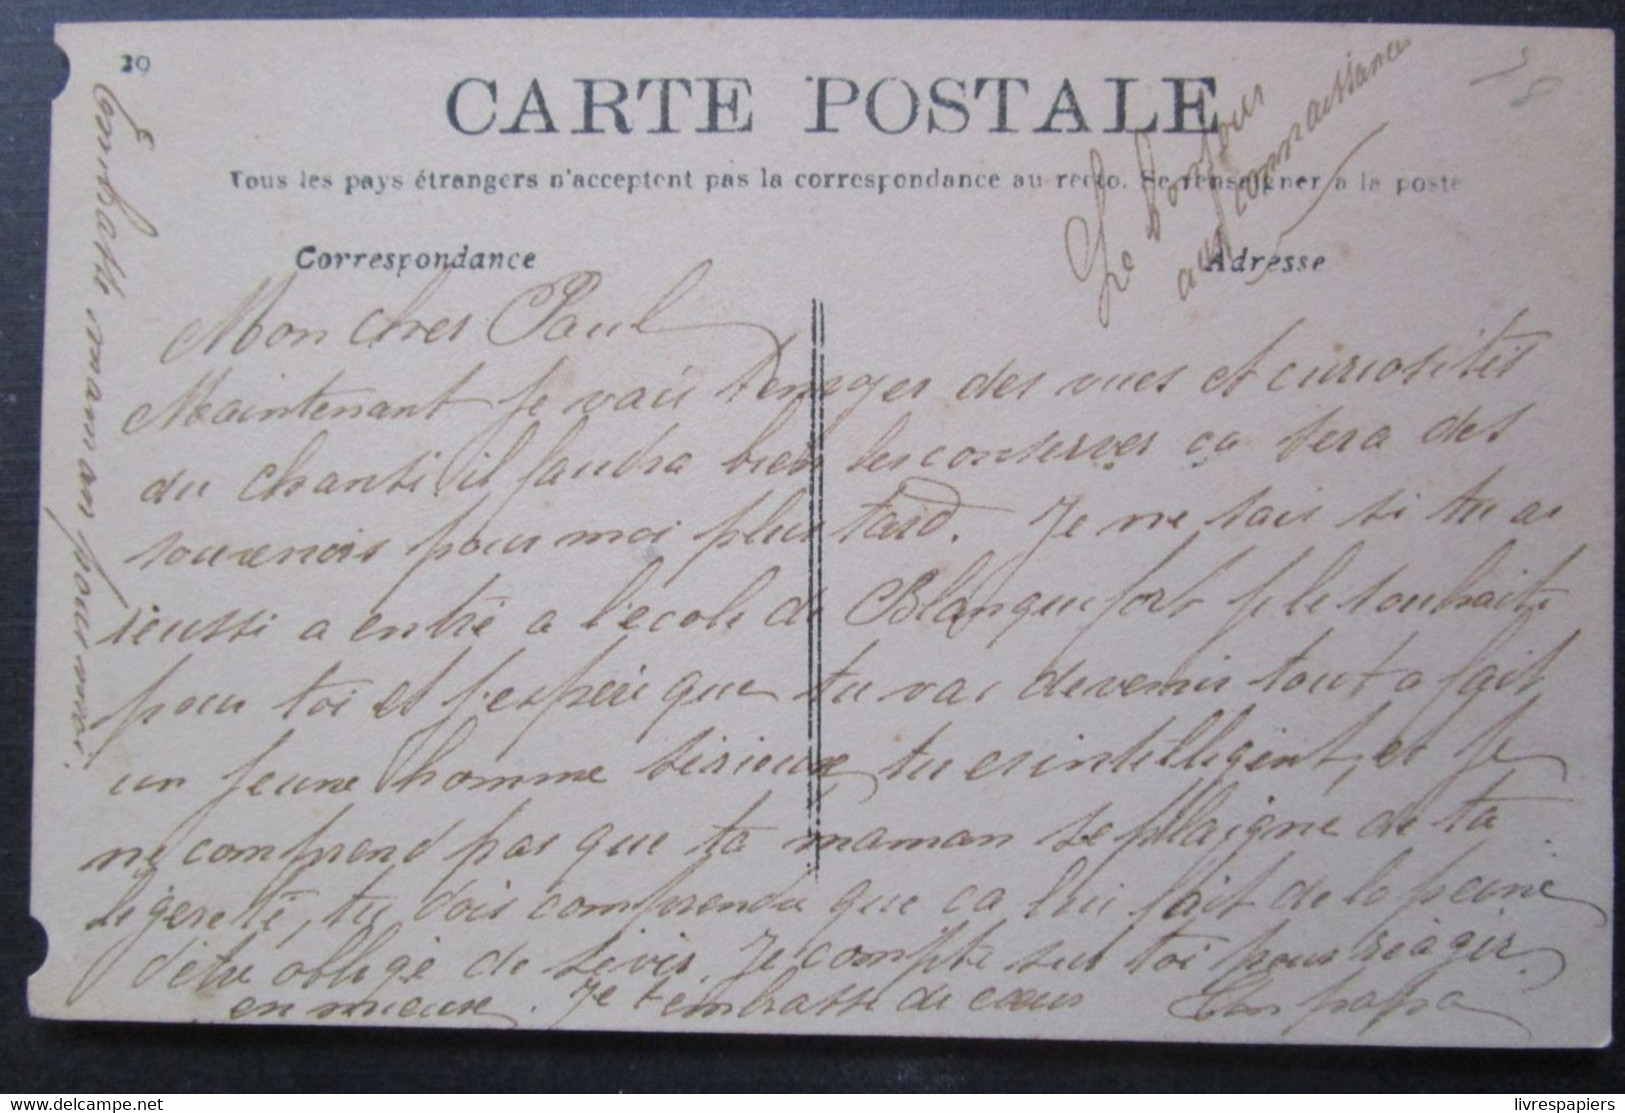 39
CARTE POSTALE
Tous les pays étrangers n'acceptent pas la correspondance au recto. Se renseigner à la poste
Correspondance
Adresse
Le bonjour
aux connaissances
Mon cher Paul
Maintenant je vais t'envoyer des vues et curiosités
du il faudra bien les conserver ça sera des
souvenirs pour moi plus tard. Je ne sais si tu as
réussi a entré a l'école de Blanquefort je le souhaite
pour toi et j'espère que tu vas devenir tout a fait
un jeune homme sérieux tu es intelligent, et je
ne comprend pas que ta maman se plaigne de ta
légereté, tu dois comprendre que ça lui fait de la peine
d'être obligé de sévir. Je compte sur toi pour réagir
en mieux. Je t'embrasse de cœur Ton papa
Embrasse maman pour moi.
livrespapiers